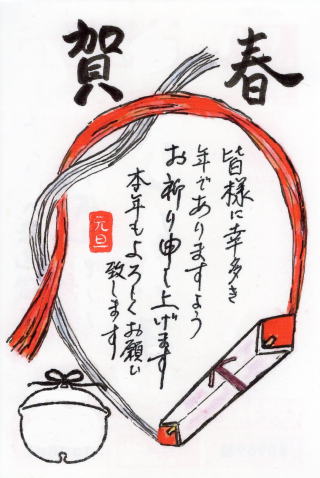 賀春
皆様に幸多き
年でありますよう
お祈り申し上げます
本年もよろしくお願い
致します
元旦